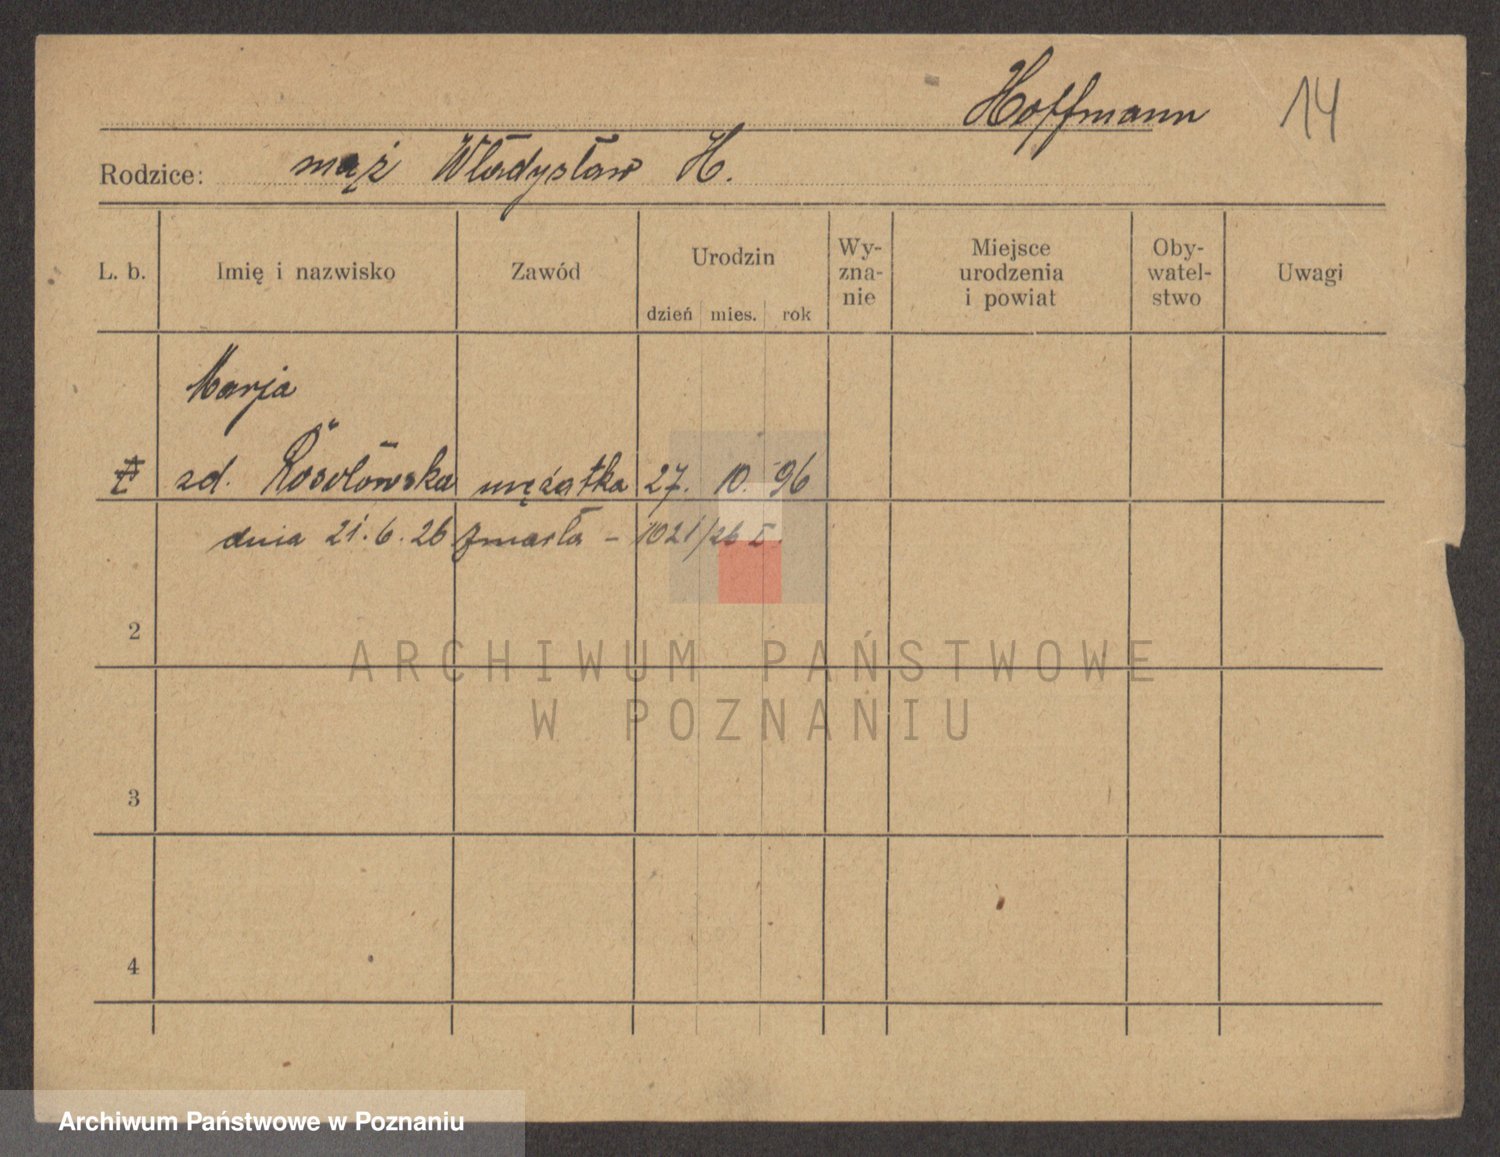 Hoffmann 14
Rodzice: mąż Władysław H.
L. b. Imię i nazwisko Zawód Urodzin dzień mies. rok Wy-zna-nie Miejsce urodzenia i powiat Oby-watel-stwo Uwagi
Marja
zd. Rosołowska mężatka 27. 10. 96
dnia 21.6.26 zmarła - 1021/26 I
2
ARCHIWUM PAŃSTWOWE
W POZNANIU
3
4
Archiwum Państwowe w Poznaniu